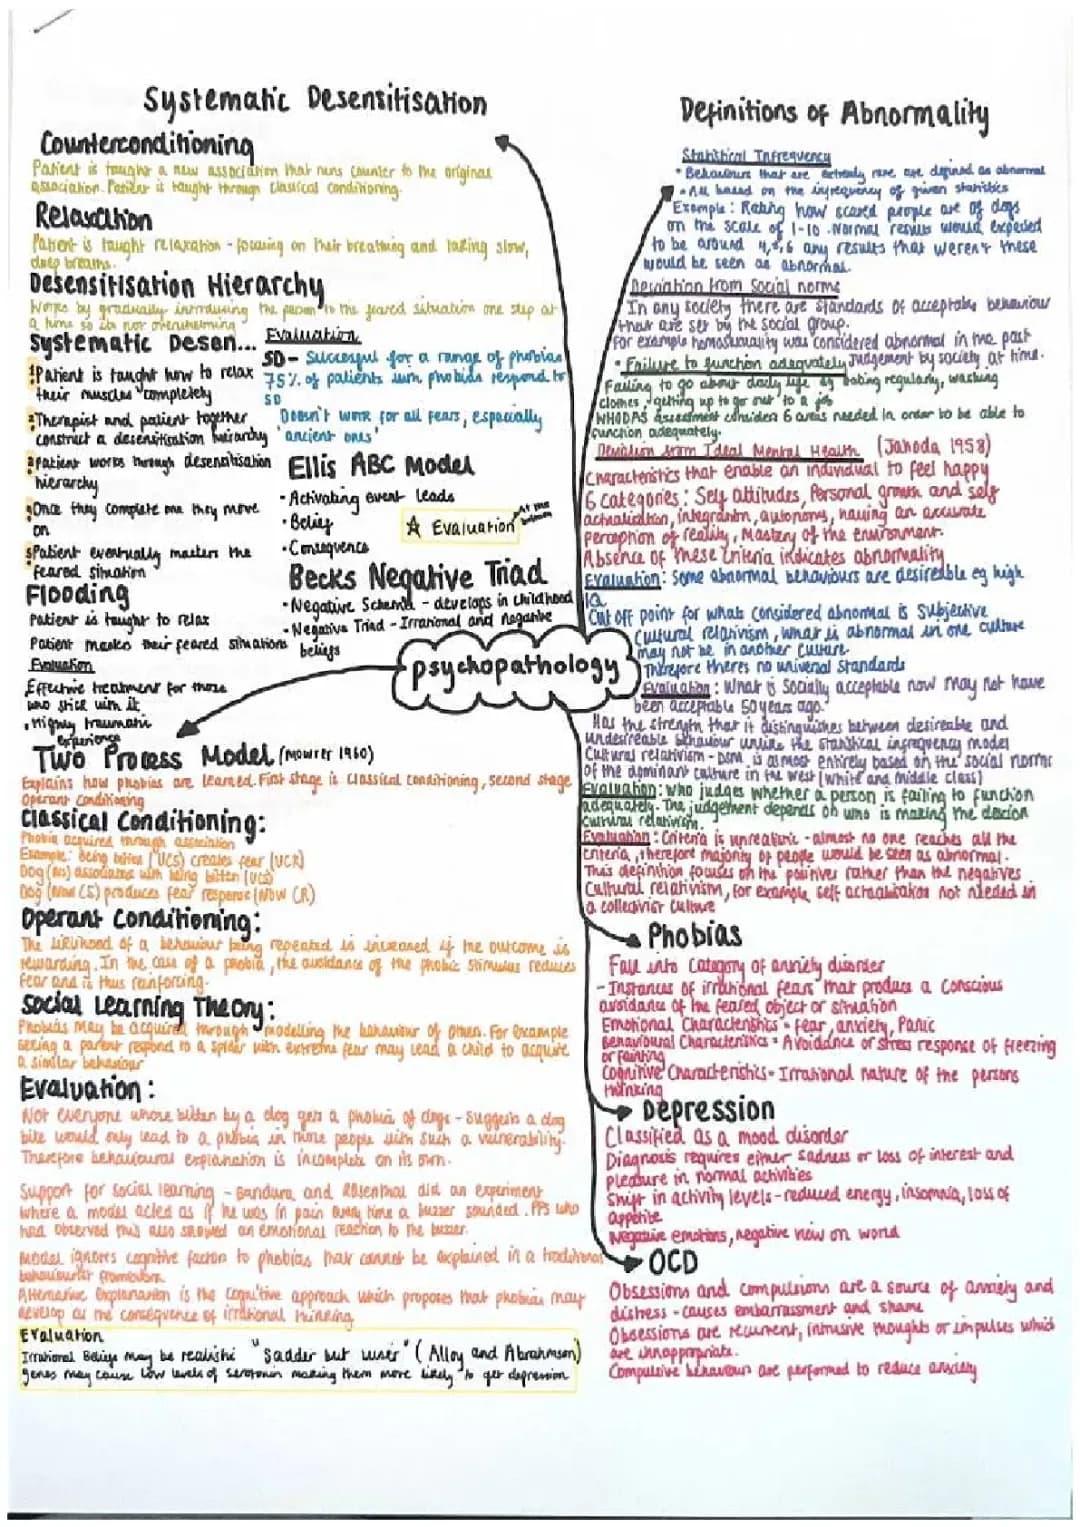 Systematic Desensitisation
Counterconditioning
Patient is taught a new association that runs counter to the original
association. Patient is taught through classical conditioning.
Relaxation
Patient is taught relaxation - focusing on their breathing and taking slow,
deep breaths.
Desensitisation Hierarchy
Works by gradually introducing the person to the feared situation one step at
a time so its not overwhelming
Systematic Desen...
1 Patient is taught how to relax
their muscles completely
2 Therapist and patient together
construct a desensitisation heirarchy
3 Patient works through desensitisation
hierarchy
4 Once they complete one they move
on
5 Patient eventually masters the
feared situation
Evaluation
SD - Successful for a range of phobias
75% of patients with phobias respond to
SD
Doesn't work for all fears, especially
'ancient ones'
Ellis ABC Model
• Activating event leads
• Belief
• Consequence
☆ Evaluation At the bottom
Becks Negative Triad
• Negative Schema - develops in childhood
• Negative Triad - Irrational and negative
beliefs
Flooding
Patient is taught to relax
Patient masters their feared situations
Evaluation
Effective treatment for those
who stick with it
, Highly traumatic
experience
psychopathology
Two Process Model (Mowrer 1960)
Explains how phobias are learned. First stage is classical conditioning, second stage
Operant conditioning
Classical Conditioning:
Phobia acquired through association
Example: Being bitten (UCS) creates fear (UCR)
Dog (NS) associated with being bitten (UCS)
Dog (Now CS) produces fear response (Now CR)
Operant Conditioning:
The likelihood of a behaviour being repeated is increased if the outcome is
rewarding. In the case of a phobia, the avoidance of the phobic stimulus reduces
fear and is thus reinforcing.
Social Learning Theory:
Phobias may be acquired through modelling the behaviour of others. For example
seeing a parent respond to a spider with extreme fear may lead a child to acquire
a similar behaviour
Evaluation:
Not everyone whose bitten by a dog gets a phobia of dogs - suggests a dog
bite would only lead to a phobia in those people with such a vulnerability.
Therefore behavioural explanation is incomplete on its own.
Support for social learning - Bandura and Rosenthal did an experiment
where a model acted as if he was in pain every time a buzzer sounded. PPS who
had observed this also showed an emotional reaction to the buzzer.
Model ignores cognitive factors to phobias that cannot be explained in a traditional
behaviourist framework.
Alternative Explanation is the cognitive approach which proposes that phobias may
develop as the consequence of irrational thinking
Evaluation
Irrational Beliefs may be realistic "Sadder but wiser" (Alloy and Abrahmson)
genes may cause low levels of serotonin making them more likely to get depression
Definitions of Abnormality
Statistical Infrequency
• Behaviours that are extremely rare are defined as abnormal
• All based on the infrequency of given statistics
Example: Rating how scared people are of dogs
on the scale of 1-10. Normal results would expected
to be around 4,5,6 any results that weren't these
would be seen as abnormal.
Deviation from Social norms
In any society there are standards of acceptable behaviour
that are set by the social group.
For example homosexuality was considered abnormal in the past
• Failure to function adequately Judgement by society at time.
Failing to go about daily life eg eating regularly, washing
clothes, getting up to go out to a job
WHODAS assessment considers 6 areas needed in order to be able to
function adequately.
Deviation from Ideal Mental Health (Jahoda 1958)
Characteristics that enable an individual to feel happy
6 categories: Self attitudes, Personal growth and self
actualisation, integration, autonomy, having an accurate
perception of reality, Mastery of the environment.
Absence of these criteria indicates abnormality
Evaluation: Some abnormal behaviours are desireable eg high
IQ
Cut off point for whats considered abnormal is Subjective
Cultural relativism, what is abnormal in one culture
may not be in another culture.
Therefore theres no universal standards
Evaluation: What is Socially acceptable now may not have
been acceptable 50 years ago.
Has the strength that it distinguishes between desireable and
undesireable behaviour unlike the statistical infrequency model
Cultural relativism - DSM is almost entirely based on the social norms
of the dominant culture in the west (white and middle class)
Evaluation: Who judges whether a person is failing to function
adequately. The judgement depends on who is making the decision
Cultural relativism.
Evaluation: Criteria is unrealistic - almost no one reaches all the
criteria, therefore majority of people would be seen as abnormal.
This definition focuses on the positives rather than the negatives
Cultural relativism, for example, self actualisation not needed in
a collectivist culture
Phobias
Fall into category of anxiety disorder
- Instances of irrational fears that produce a conscious
avoidance of the feared object or situation
Emotional Characteristics - fear, anxiety, Panic
Behavioural Characteristics = Avoidance or stress response of freezing
or fainting
Cognitive Characteristics - Irrational nature of the persons
thinking
Depression
Classified as a mood disorder
Diagnosis requires either sadness or loss of interest and
pleasure in normal activities
Shift in activity levels - reduced energy, insomnia, loss of
appetite
Negative emotions, negative view on world
OCD
Obsessions and compulsions are a source of anxiety and
distress - causes embarrassment and shame
Obsessions are recurrent, intrusive thoughts or impulses which
are innappropriate.
Compulsive behaviours are performed to reduce anxiety